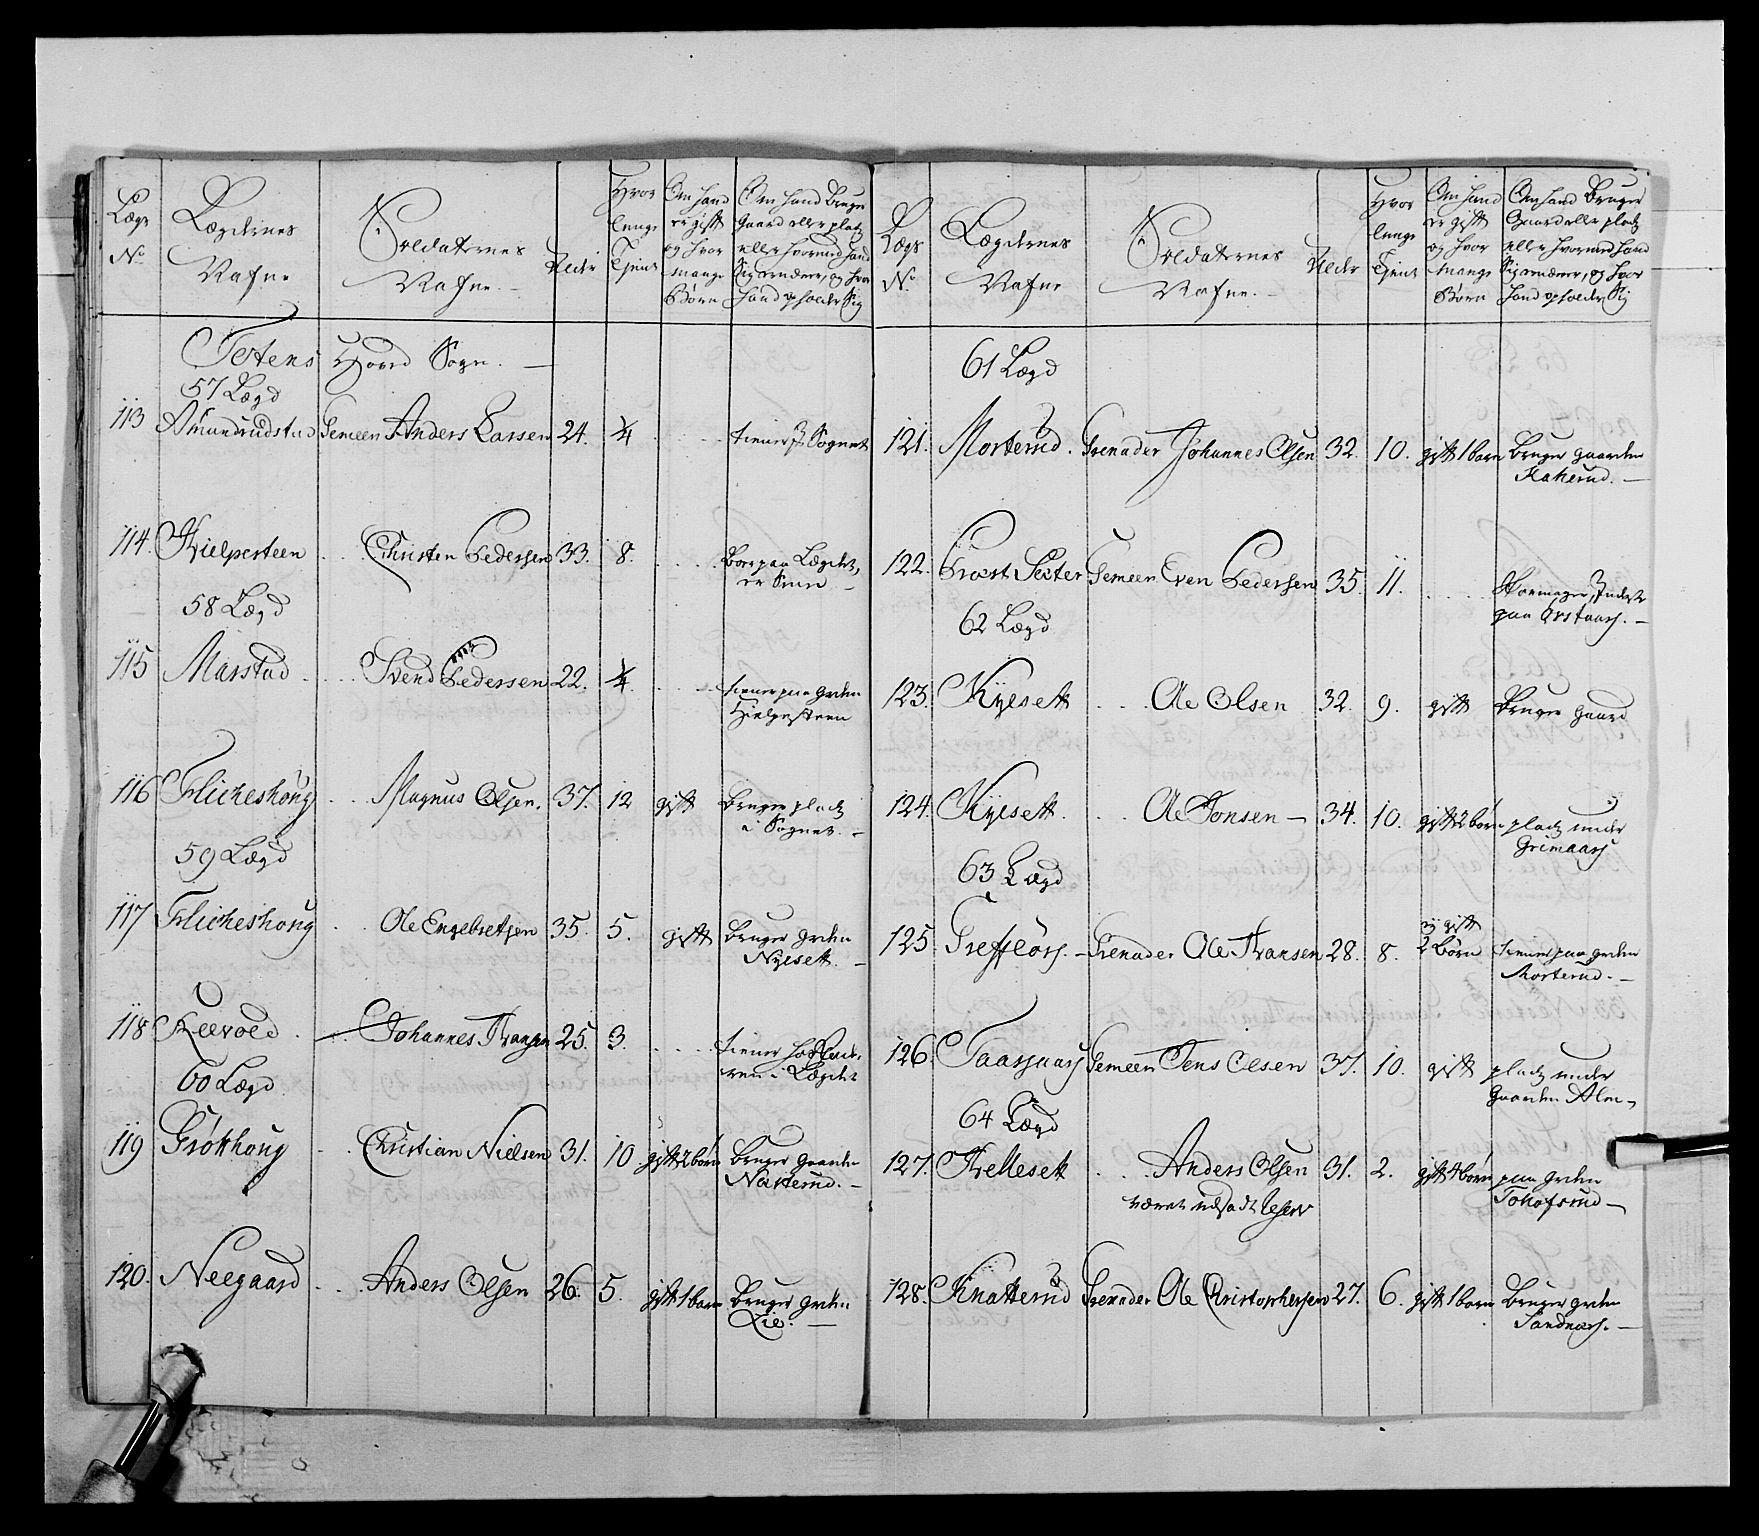 Lægs
No
Lægdernes
Nafne
Soldaternes
Nafne.
Alder
Hvor
lenge
Tjent
Om hand
er gift
og hvor
mange
Børn
Om hand bruger
Gaard eller platz
eller hvormed hand
Sig ernærer, og hvor
hand opholder Sig
Totens Hoved Sogn.
57 Lægd
113 Amundrudstad Gemeen Anders Larsen 24. 1/4 tiener i Sognet
114. Kielpesteen Christen Pedersen 33. 8. Boer paa Lægdet,
er Smed
58 Lægd
115 Marstad Svend Pedersen 22. 1/4. tiener paa Grden
Hielpesteen
116 Flicheshoug Magnus Olsen. 37. 12 gift Bruger platz
i Sognet.
59 Lægd
117 Flicheshoug Ole Engebretsen 35. 5. gift Bruger Grden
Nyesett.
118 Johannes Hansen 25. 3. tiener
i Lægdet
60 Lægd
119 Grøthoug Christian Nielsen 31. 10 gift 2 børn Bruger Gaarden
120. Neegaard Anders Olsen 26. 5. gift 1 barn Bruger Grden
Lie.
Lægs
No
Lægdernes
Nafne
Soldaternes
Nafne.
Alder
Hvor
lenge
Tjent
Om hand
er gift
og hvor
mange
Børn
Om hand Bruger
Gaard eller platz
eller hvormed hand
Sig ernærer, og hvor
hand opholder Sig
61 Lægd
121. Morterud. Grenader Johannes Olsen 32. 10. gift 1 barn Bruger gaarden
122. Præst Sæter Gemeen Even Pedersen 35. 11. Skomager,
paa
62 Lægd
123. Kyesett Ole Olsen 32. 9. gift Bruger Gaard
124. Kyesett. Ole Jonsen 34. 10. gift 2 børn platz under
Grimaas
63 Lægd
125. Grenader Ole Hansen 28. 8. gift
2 Børn tiener paa Grden
Morterud.
126. Gemeen Jens Olsen 37. 10. gift platz under
Gaarden Alm
64 Lægd
127. Anders Olsen 31. 2. gift 4 børn paa Grden
været udsadt Reserv
128. Knatterud Grenader Ole Christophersen 27. 6. gift 1 barn Bruger Grden
Sandnæs.